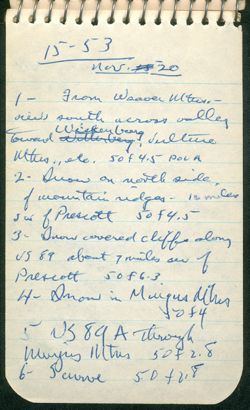 15-53
Nov. 20
1- From Weaver Mtns.-
view south across valley
toward Wickenburg, Vulture
Mtns., etc. 50 f 4.5 Pola
2- Snow on north side
of mountain ridges - 10 miles
sw of Prescott 50 f 4.5
3- Snow covered cliffs along
US 89 about 7 miles sw of
Prescott 50 f 6.3
4- Snow in Mingus Mtns
50 f 4
5 US 89 A through
Mingus Mtns 50 f 2.8
6- S curve 50 f 2.8